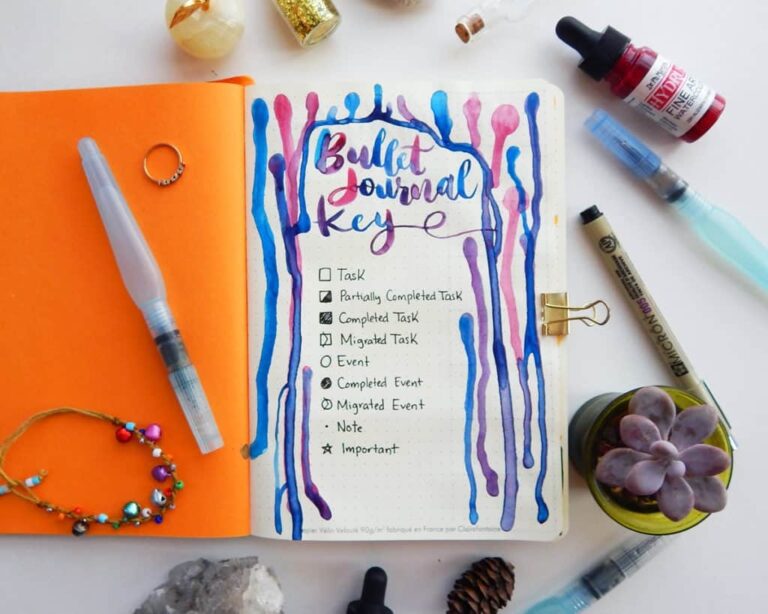 Bullet
Journal
Key
Task
Partially Completed Task
Completed Task
Migrated Task
Event
Completed Event
Migrated Event
Note
Important
Vélin Velouté 90g/m² fabriqué en France par Clairefontaine
HYDRUS
FINE ART
WATERCOLOR
MICRON 005